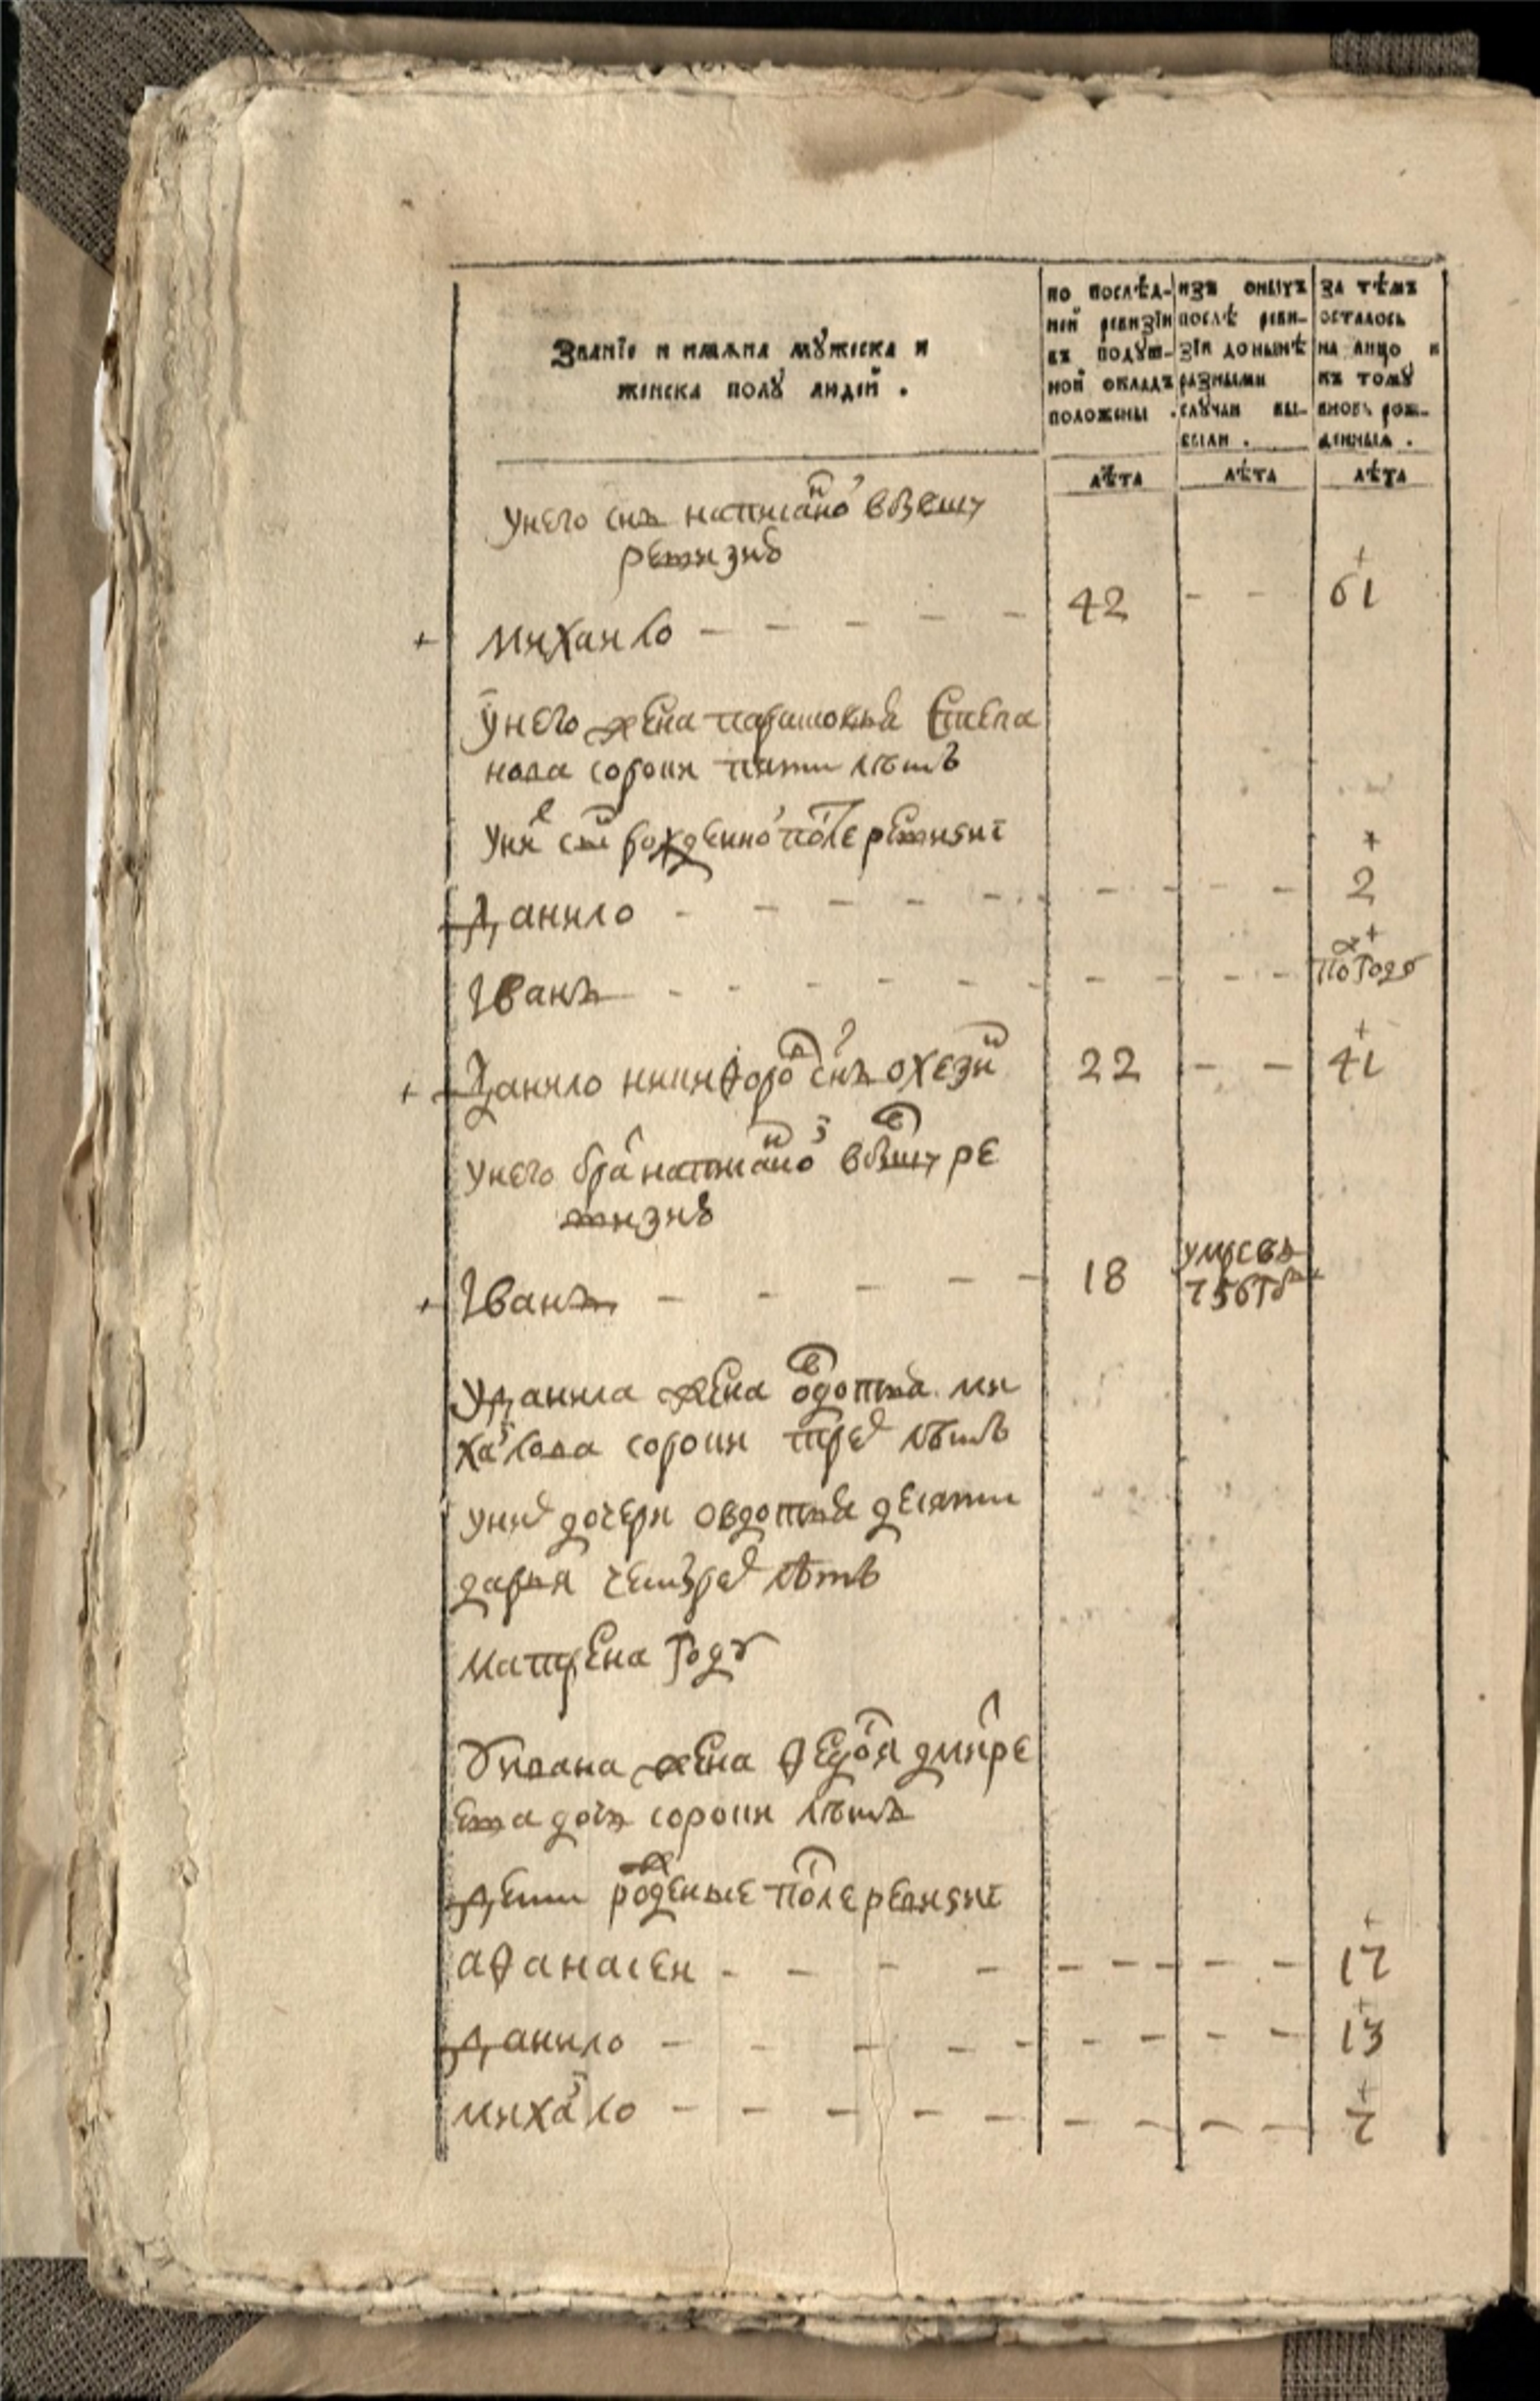 Званїе и имѧна мꙋжеска и
женска полꙋ людей .
по послѣд-
ней ревизїи
въ подꙋш-
ной окладъ
положены .
изъ оныхъ
послѣ реви-
зїи донынѣ
разными
слꙋчаи вы-
были .
за тѣмъ
осталось
на лицо и
къ томꙋ
вновь рож-
денныя .
лѣта
лѣта
лѣта
У него снъ написанно в бывшу
ревизию
+ Михаило - - - - - 42 - - 61
У него жена парасковья степа
нова сорока пяти летъ
У ни сни рожденно после ревизиї
Данило - - - - - - - - - 2
Иванъ - - - - - - - - - полгоду
+ Данило никифоро снъ 22 - - 41
У него бра написанно в бывшу ре
визию
+ Иванъ - - - - - 18 умре в
756 гд
У данила жена овдотья ми
хаилова сорока трех летъ
У них дочери овдотья десяти
дарья четырех летъ
Матрена году
У ивана жена федося дмитре
ева дочь сорока летъ
Дети рожденые после ревизиї
Афанасеи - - - - - - - - - 17
Данило - - - - - - - - - 13
Михаило - - - - - - - - - 7